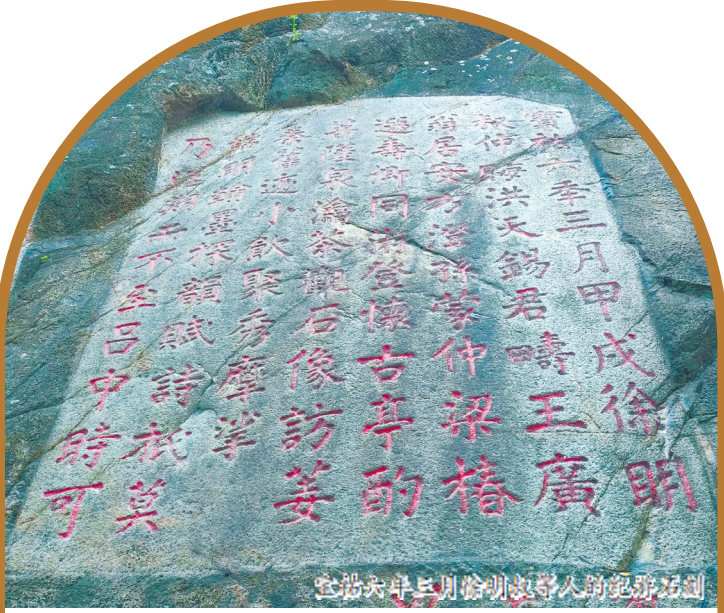 寶祐六秊三月甲戌徐明
叔仲晦洪天錫君疇王廣
翁居安方澄孫蒙仲梁椿
選壽卿同游登懷古亭酌
菩薩泉瀹茶觀石像訪姜
秦舊迹小飲聚秀摩挲
明翰墨探韻賦詩抵莫
乃歸期而不至呂中時可
宝祐六年三月徐明叔等人的纪游石刻